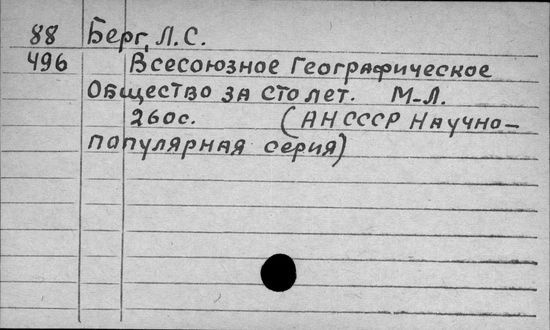 88 Берг, Л.С.
496 Всесоюзное Географическое
Общество за сто лет. М-Л.
260с. (АН СССР Научно-
популярная серия)